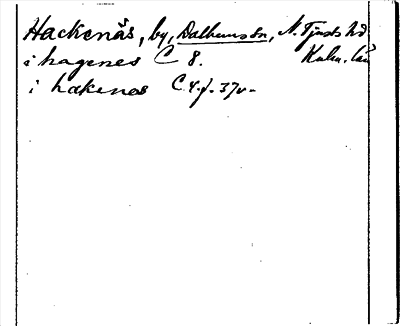 Hackenäs, by, Dalhems sn, N. Tjusts hd.
i hagenes C 8. Kalm. län
i hakenes C. 4. f. 37v.